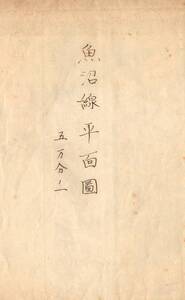 魚沼線平面圖
五万分ノ一